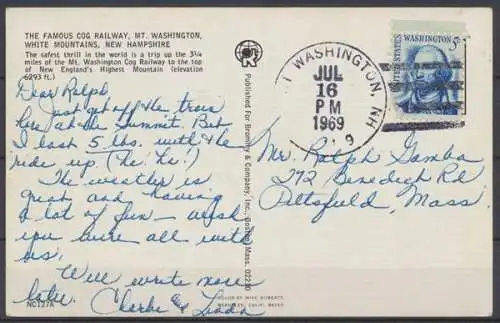 THE FAMOUS COG RAILWAY, MT. WASHINGTON,
WHITE MOUNTAINS, NEW HAMPSHIRE
The safest thrill in the world is a trip up the 3¼
miles of the Mt. Washington Cog Railway to the top
of New England's Highest Mountain (elevation
6293 ft.)
Dear Ralph,
Just got off the train
here at the Summit. But
I lost 5 lbs. with the
ride up (he! he!)
The weather is
great and having
a lot of fun — wish
you were all with
us.
Will write more
later.
Clarke & Linda
NC127A
Published For Bromley & Company, Inc., Boston, Mass. 02210
COLOR BY MIKE ROBERTS
BERKELEY, CALIF. 94710
T WASHINGTON, NH
JUL
16
PM
1969
UNITED STATES
5¢
WASHINGTON
Mr. Ralph Gamba
272 Benedict Rd
Pittsfield, Mass.